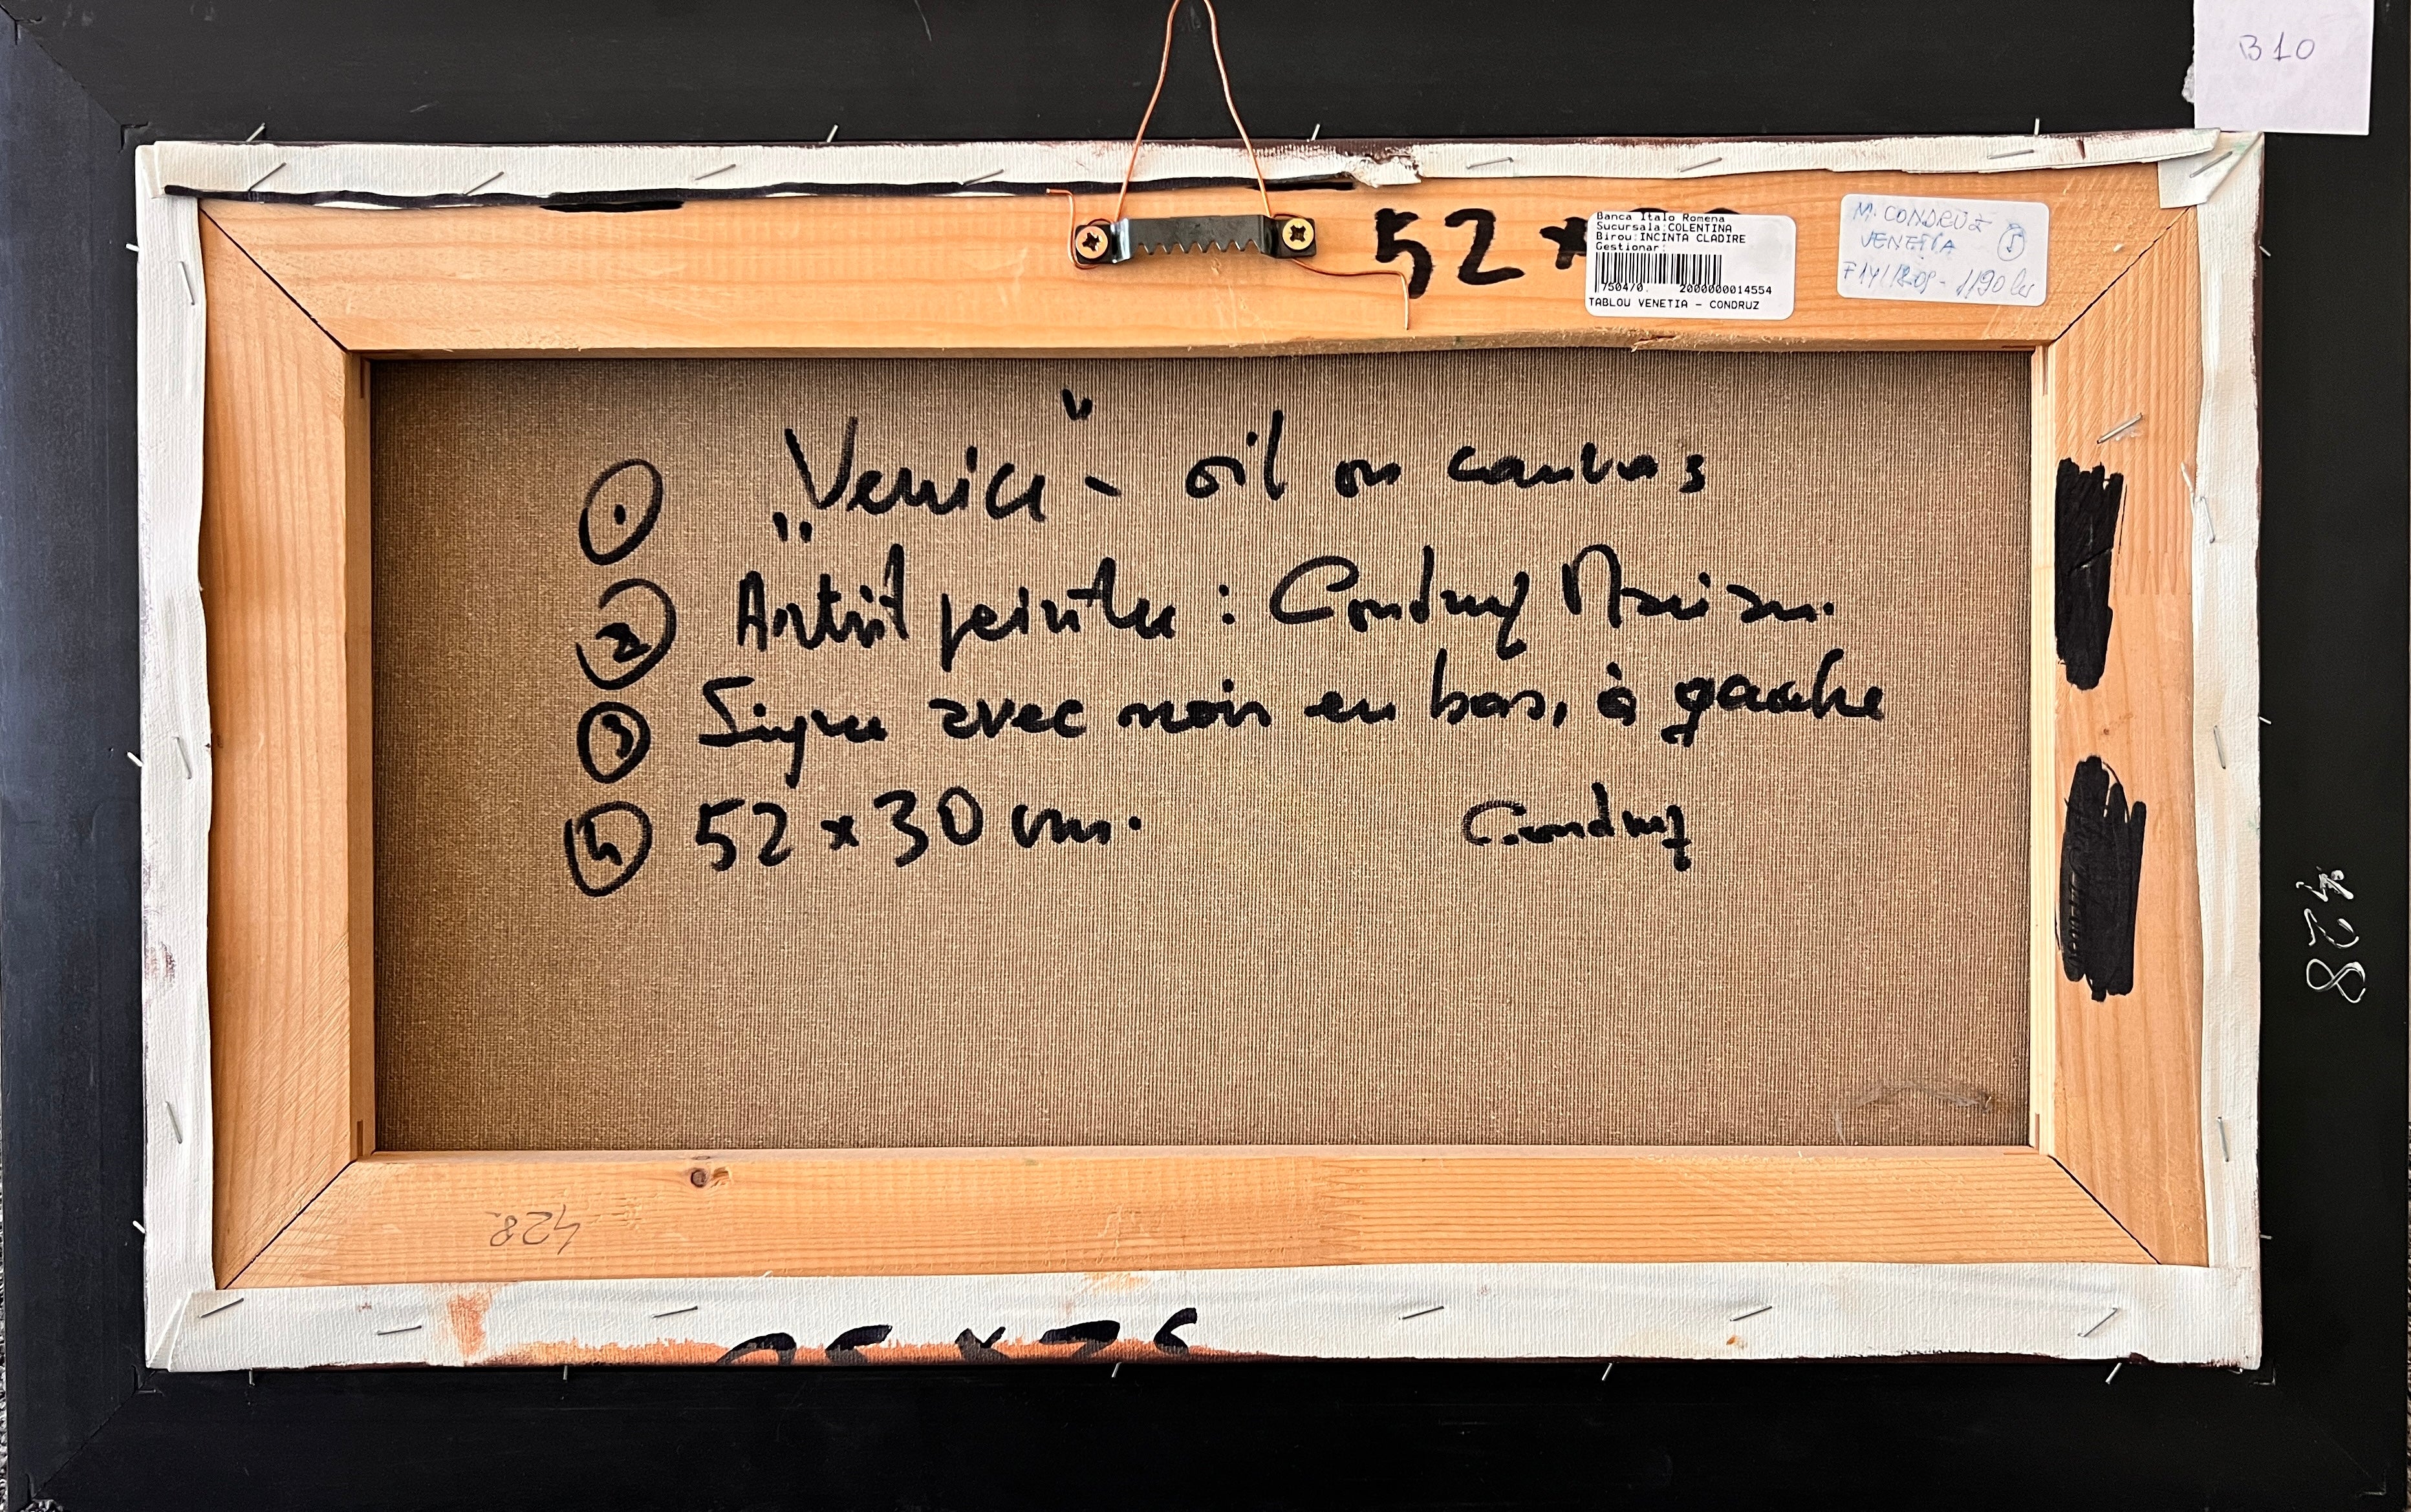 B10
52 ×
Banca Italo Romena
Sucursala:COLENTINA
Birou:INCINTA CLADIRE
Gestionar:
750470. 2000000014554
TABLOU VENETIA - CONDRUZ
M. CONDRUZ
VENETIA
1190 lei
1 „Venice" - oil on canvas
2 Artist peintre : Condruz Marian.
3 Signe avec noir en bas, à gauche
4 52 × 30 cm.
Condruz
428
428